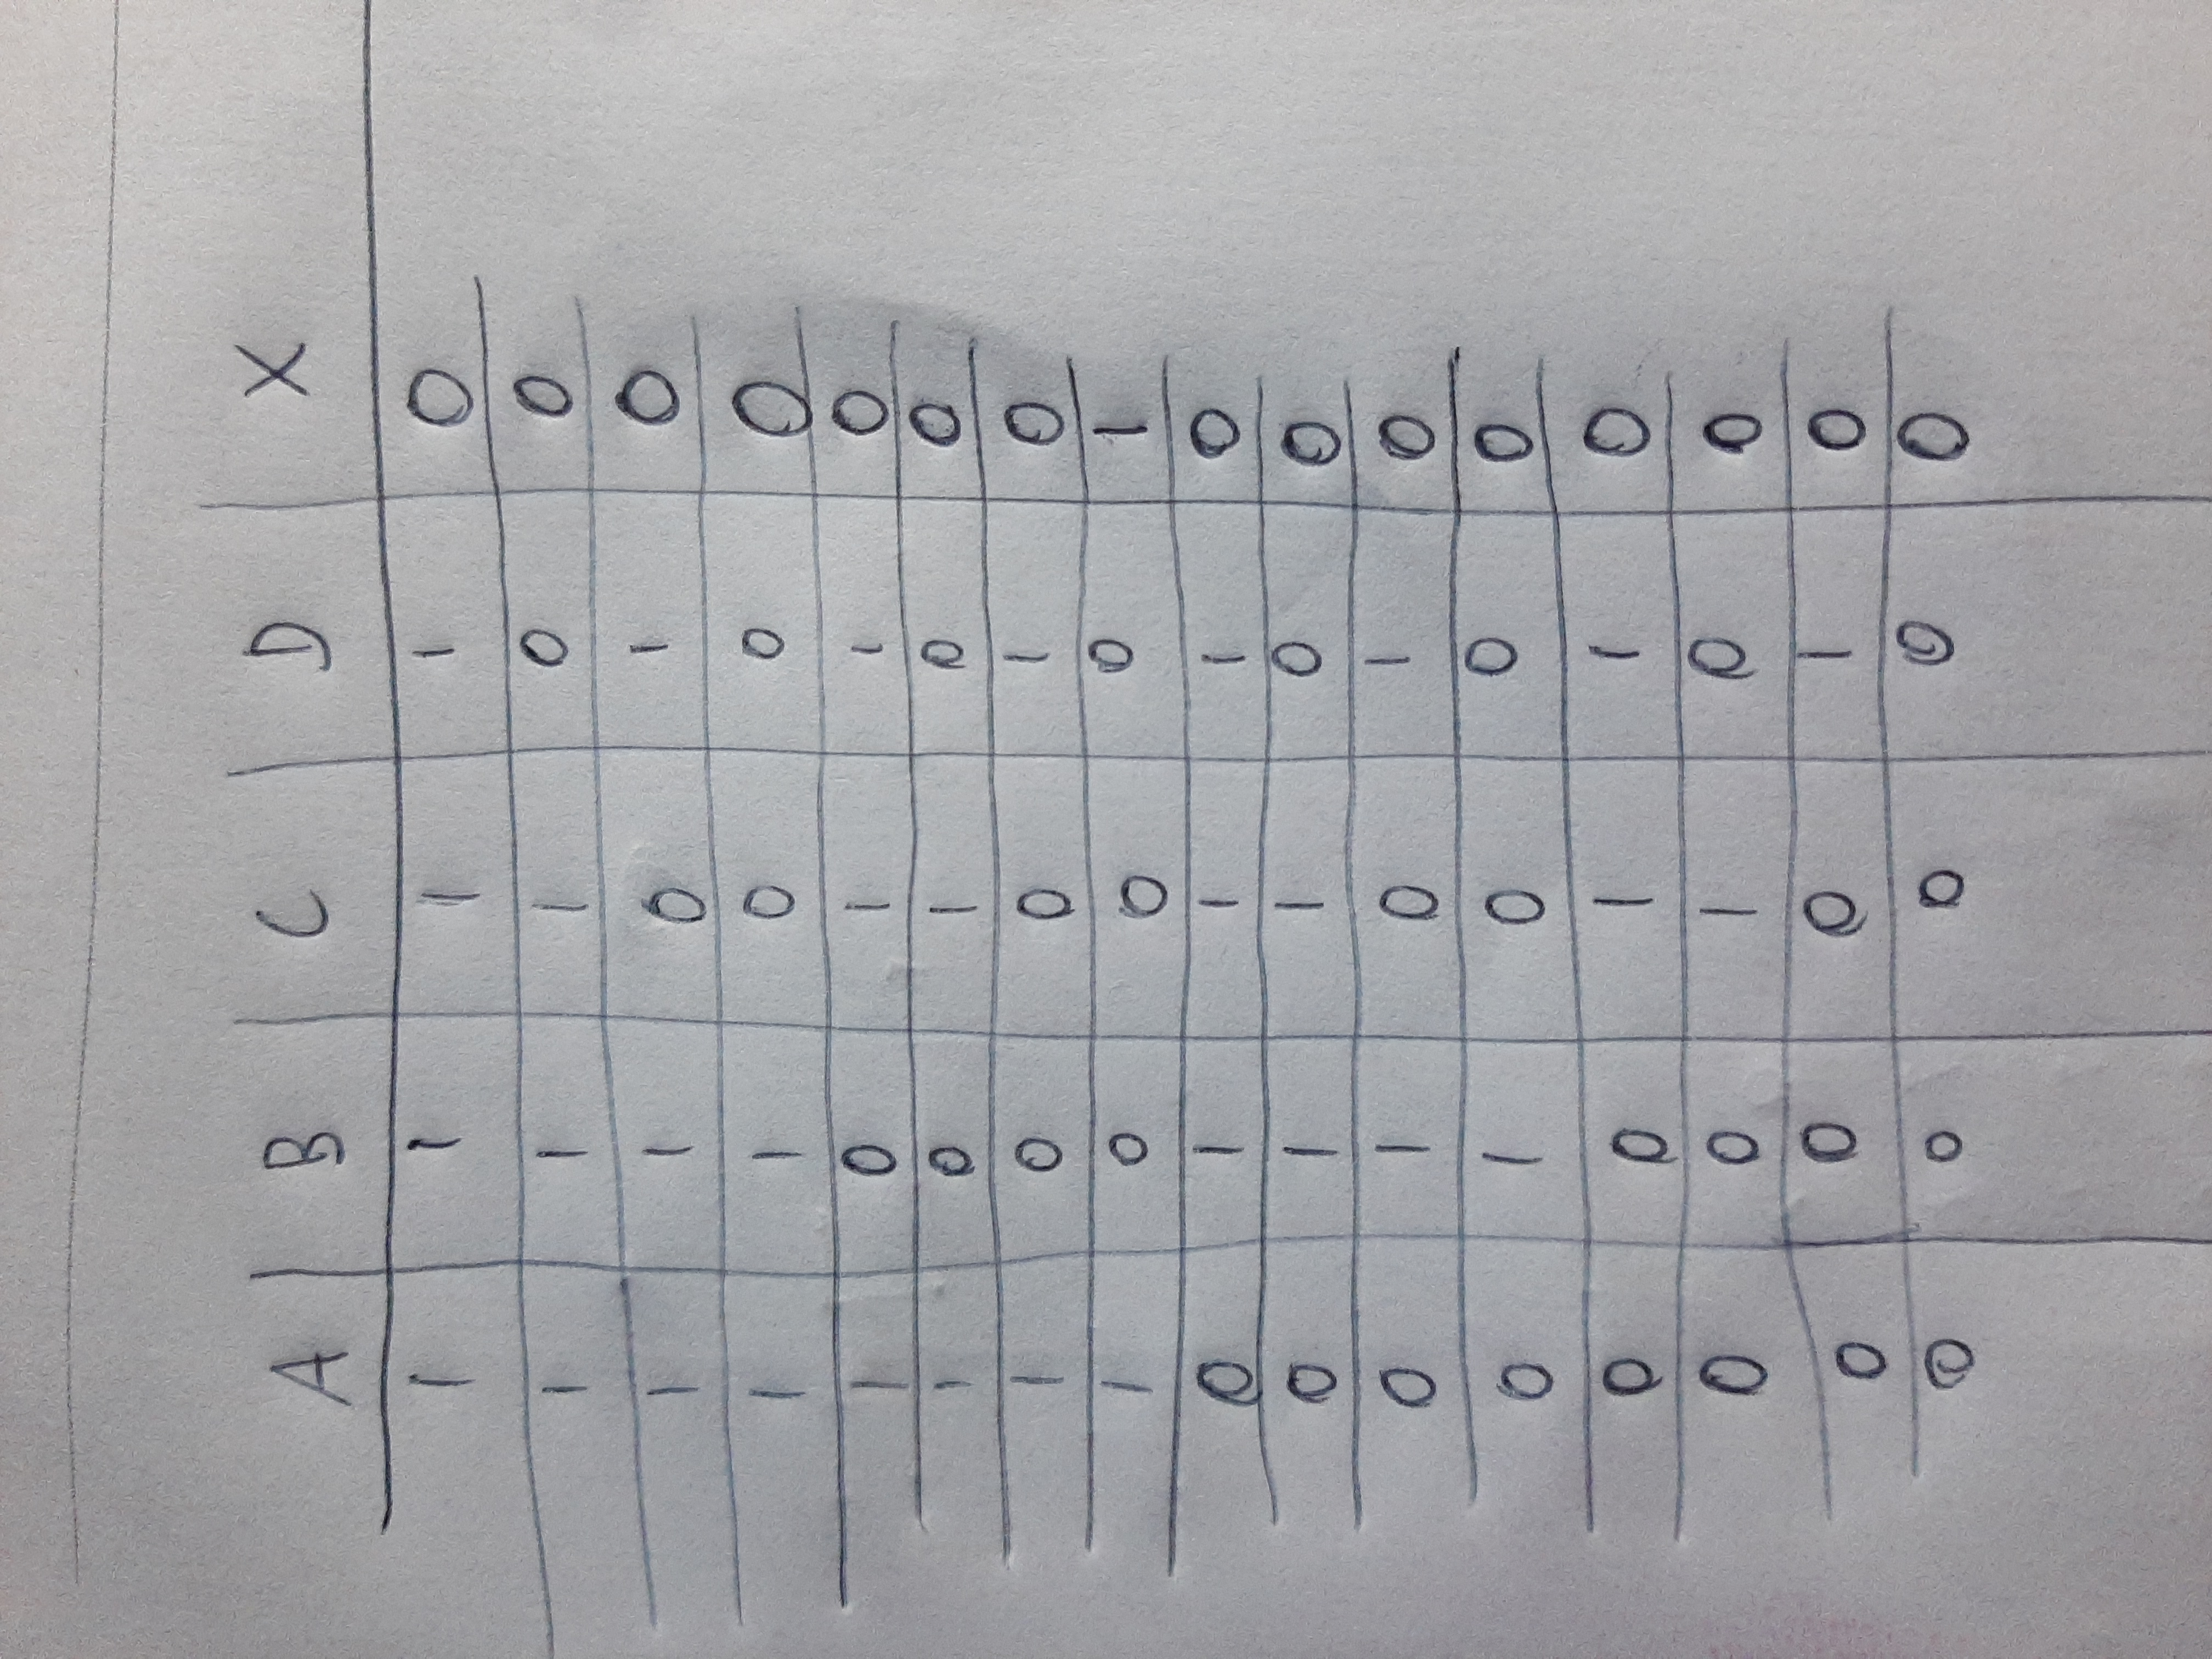 A B C D X
1 1 1 1 0
1 1 1 0 0
1 1 0 1 0
1 1 0 0 0
1 0 1 1 0
1 0 1 0 0
1 0 0 1 0
1 0 0 0 1
0 1 1 1 0
0 1 1 0 0
0 1 0 1 0
0 1 0 0 0
0 0 1 1 0
0 0 1 0 0
0 0 0 1 0
0 0 0 0 0